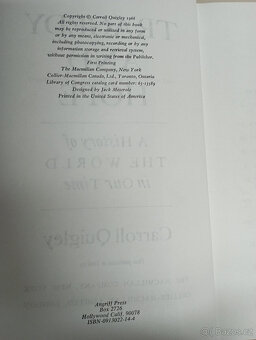 Copyright © Carroll Quigley 1966
All rights reserved. No part of this book
may be reproduced or utilized in any form
or by any means, electronic or mechanical,
including photocopying, recording or by any
information storage and retrieval system,
without permission in writing from the Publisher.
First Printing
The Macmillan Company, New York
Collier-Macmillan Canada, Ltd., Toronto, Ontario
Library of Congress catalog card number: 65-13589
Designed by Jack Meserole
Printed in the United States of America
A History of
THE WORLD
in Our Time
Carroll Quigley
Angriff Press
Box 2726
Hollywood Calif. 90078
ISBN-0913022-14-4